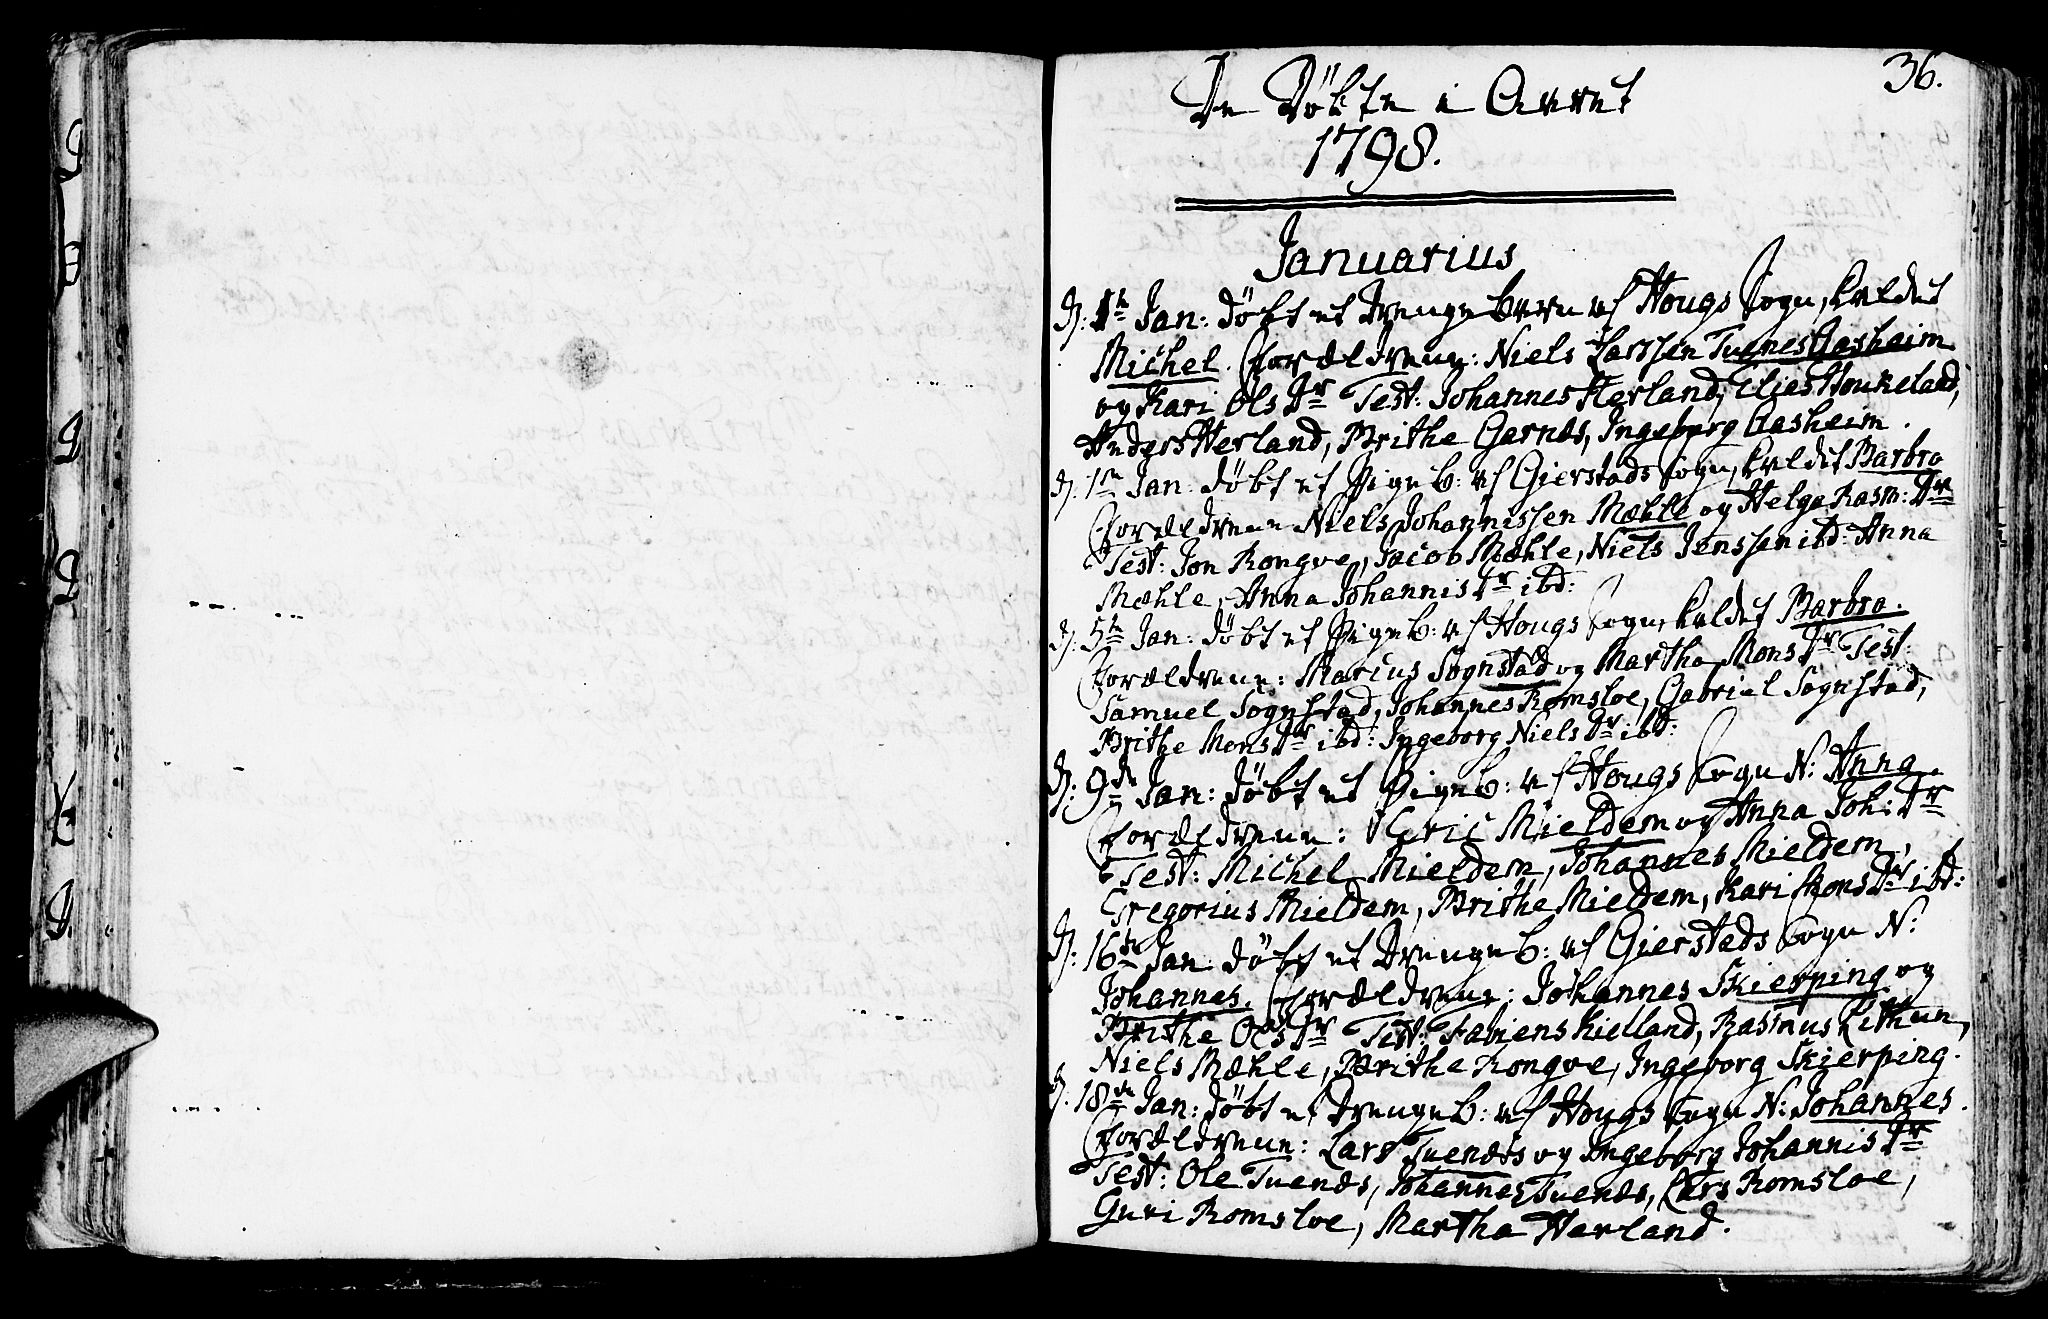 36.
De Döbte i Aaret
1798.
Januarius
D: 1te Jan: döbt et Drengebarn af Hougs Sogn, kaldet
Michel. Forældrene: Niels Larssen Tuenes Gasheim
og Kari Ols Dr Test: Johannes Herland, Elias Houkeland,
Anders Herland, Brithe Garnæs, Ingeborg Gasheim.
D: 1te Jan: döbt et Pigeb: af Gierstads Sogn, kaldet Barbro
Forældrene Niels Johannissen Mæhle og Helga Rasm: Dr
Test: Jon Rongve, Jacob Mæhle, Niels Jenssen ibd: Anna
Mæhle, Anna Johannis Dr ibd:
D: 5te Jan: döbt et Pigeb: af Hougs Sogn, kaldet Barbro.
Forældrene: Marcus Sognstad og Martha Mons Dr Test:
Samuel Sognstad, Johannes Romsloe, Gabriel Sognstad,
Brithe Mons Dr ibd: Ingeborg Niels Dr ibd:
D: 9de Jan: döbt et Pigeb: af Hougs Sogn N: Anna.
Forældrene: Eric Mieldem og Anna Joh: Dr
Test: Michel Mieldem, Johannes Mieldem,
Gregorius Mieldem, Brithe Mieldem, Kari Mons Dr ibd:
D: 16de Jan: döbt et Drengeb: af Gierstads Sogn N:
Johannes. Forældrene: Johannes Skierping og
Brithe Ols Dr Test: Fabien Skielland, Rasmus Lithun,
Niels Mæhle, Brithe Rongve, Ingeborg Skierping.
D: 18de Jan: döbt et Drengeb: af Hougs Sogn N: Johannes.
Forældrene: Lars Tuenæs og Ingeborg Johannis Dr
Test: Ole Tuenæs, Johannes Tuenæs, Lars Romsloe,
Guri Romsloe, Martha Herland.